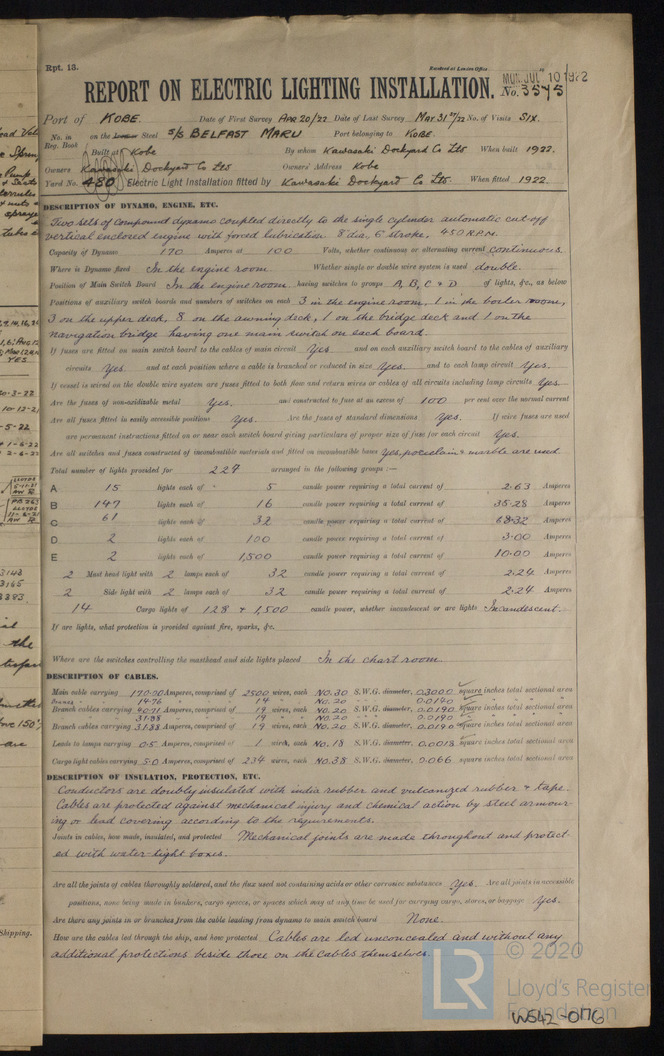 Rpt. 13.
Received at London Office
MON. JUL 10 1922
REPORT ON ELECTRIC LIGHTING INSTALLATION. No. 3575
Port of KOBE. Date of First Survey Apr 20/22 Date of Last Survey May 31st/22 No. of Visits Six.
No. in Reg. Book on the Steel S/S BELFAST MARU Port belonging to KOBE
Built at Kobe By whom Kawasaki Dockyard Co Ltd. When built 1922.
Owners Kawasaki Dockyard Co Ltd Owners' Address Kobe
Yard No. 480 Electric Light Installation fitted by Kawasaki Dockyard Co Ltd. When fitted 1922.
DESCRIPTION OF DYNAMO, ENGINE, ETC.
Two sets of compound dynamo coupled directly to the single cylinder automatic cut off
vertical enclosed engine with forced lubrication 8" dia, 6" stroke, 450 R.P.M.
Capacity of Dynamo 170 Amperes at 100 Volts, whether continuous or alternating current continuous.
Where is Dynamo fixed In the engine room. Whether single or double wire system is used double.
Position of Main Switch Board In the engine room. having switches to groups A, B, C & D of lights, &c., as below
Positions of auxiliary switch boards and numbers of switches on each 3 in the engine room, 1 in the boiler room,
3 on the upper deck, 8 on the awning deck, 1 on the bridge deck and 1 on the
navigation bridge having one main switch on each board.
If fuses are fitted on main switch board to the cables of main circuit Yes and on each auxiliary switch board to the cables of auxiliary
circuits Yes and at each position where a cable is branched or reduced in size Yes and to each lamp circuit Yes.
If vessel is wired on the double wire system are fuses fitted to both flow and return wires or cables of all circuits including lamp circuits Yes
Are the fuses of non-oxidizable metal Yes. and constructed to fuse at an excess of 100 per cent over the normal current
Are all fuses fitted in easily accessible positions Yes. Are the fuses of standard dimensions Yes. If wire fuses are used
are permanent instructions fitted on or near each switch board giving particulars of proper size of fuse for each circuit Yes.
Are all switches and fuses constructed of incombustible materials and fitted on incombustible bases Yes, porcelain & marble are used
Total number of lights provided for 227 arranged in the following groups :—
A 15 lights each of 5 candle power requiring a total current of 2.63 Amperes
B 147 lights each of 16 candle power requiring a total current of 35.28 Amperes
C 61 lights each of 32 candle power requiring a total current of 68.32 Amperes
D 2 lights each of 100 candle power requiring a total current of 3.00 Amperes
E 2 lights each of 1,500 candle power requiring a total current of 10.00 Amperes
2 Mast head light with 2 lamps each of 32 candle power requiring a total current of 2.24 Amperes
2 Side light with 2 lamps each of 32 candle power requiring a total current of 2.24 Amperes
14 Cargo lights of 128 & 1,500 candle power, whether incandescent or arc lights Incandescent.
If arc lights, what protection is provided against fire, sparks, &c.
Where are the switches controlling the masthead and side lights placed In the chart room.
DESCRIPTION OF CABLES.
Main cable carrying 170.00 Amperes, comprised of 2500 wires, each No. 30 S.W.G. diameter, 0.3000 square inches total sectional area
14.76 14 No. 20 0.0140
Branch cables carrying 40.71 Amperes, comprised of 19 wires, each No. 20 S.W.G. diameter, 0.0190 square inches total sectional area
31.98 19 No. 20 0.0190
Branch cables carrying 31.88 Amperes, comprised of 19 wires, each No. 20 S.W.G. diameter, 0.0190 square inches total sectional area
Leads to lamps carrying 0.5 Amperes, comprised of 1 wires, each No. 18 S.W.G. diameter, 0.0018 square inches total sectional area
Cargo light cables carrying 5.0 Amperes, comprised of 234 wires, each No. 38 S.W.G. diameter, 0.066 square inches total sectional area
DESCRIPTION OF INSULATION, PROTECTION, ETC.
Conductors are doubly insulated with india rubber and vulcanized rubber & tape.
Cables are protected against mechanical injury and chemical action by steel armour-
ing or lead covering according to the requirements.
Joints in cables, how made, insulated, and protected Mechanical joints are made throughout and protect-
ed with water-tight boxes.
Are all the joints of cables thoroughly soldered, and the flux used not containing acids or other corrosive substances Yes. Are all joints in accessible
positions, none being made in bunkers, cargo spaces, or spaces which may at any time be used for carrying cargo, stores, or baggage Yes.
Are there any joints in or branches from the cable leading from dynamo to main switch board None.
How are the cables led through the ship, and how protected Cables are led unconcealed and without any
additional protections beside those on the cables themselves.
© 2020
LR
Lloyd's Register
Foundation
W542-0176